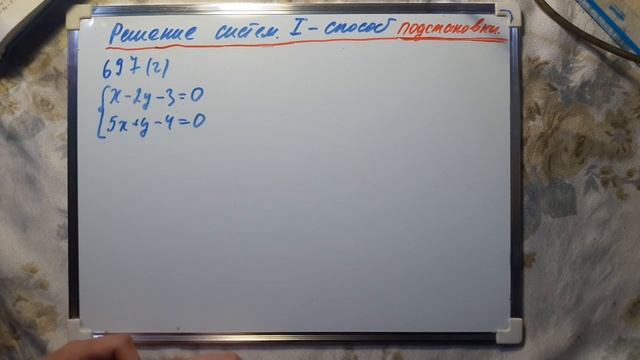 Решение систем. I - способ подстановки.
697(г)
x - 2y - 3 = 0
5x + y - 4 = 0